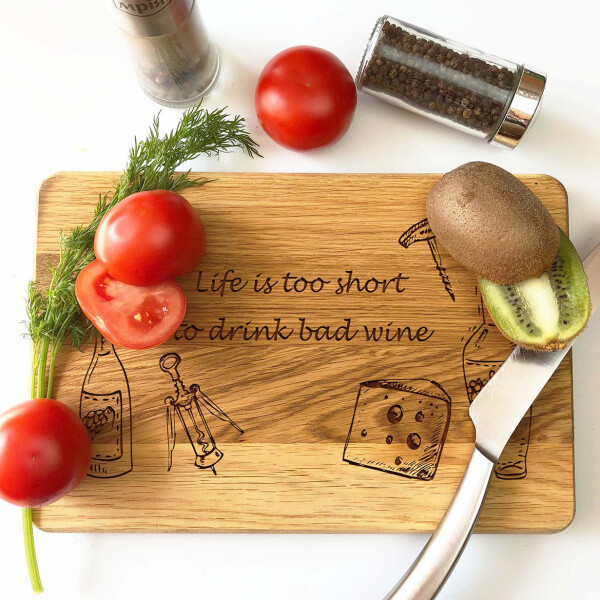 мрія
Life is too short
to drink bad wine